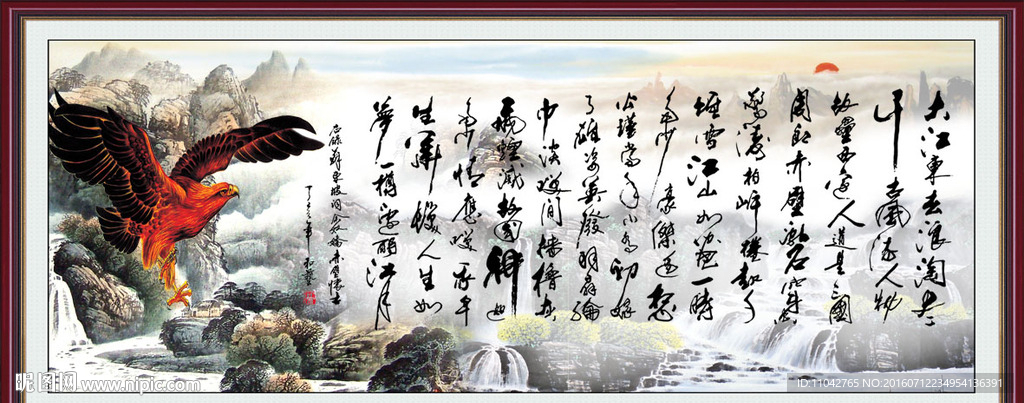 大江東去浪淘尽
千古風流人物
故壘西邊人道是三國
周郎赤壁亂石穿空
驚濤拍岸捲起千
堆雪江山如画一時
多少豪傑遥想
公瑾當年小喬初嫁
了雄姿英發羽扇綸
巾談笑間檣櫓灰
飛煙滅故國神遊
多情應笑我早
生華髮人生如
夢一樽還酹江月
右録蘇東坡詞念奴嬌赤壁懷古
昵图网 www.nipic.com
ID:11042765 NO:20160712234954136391